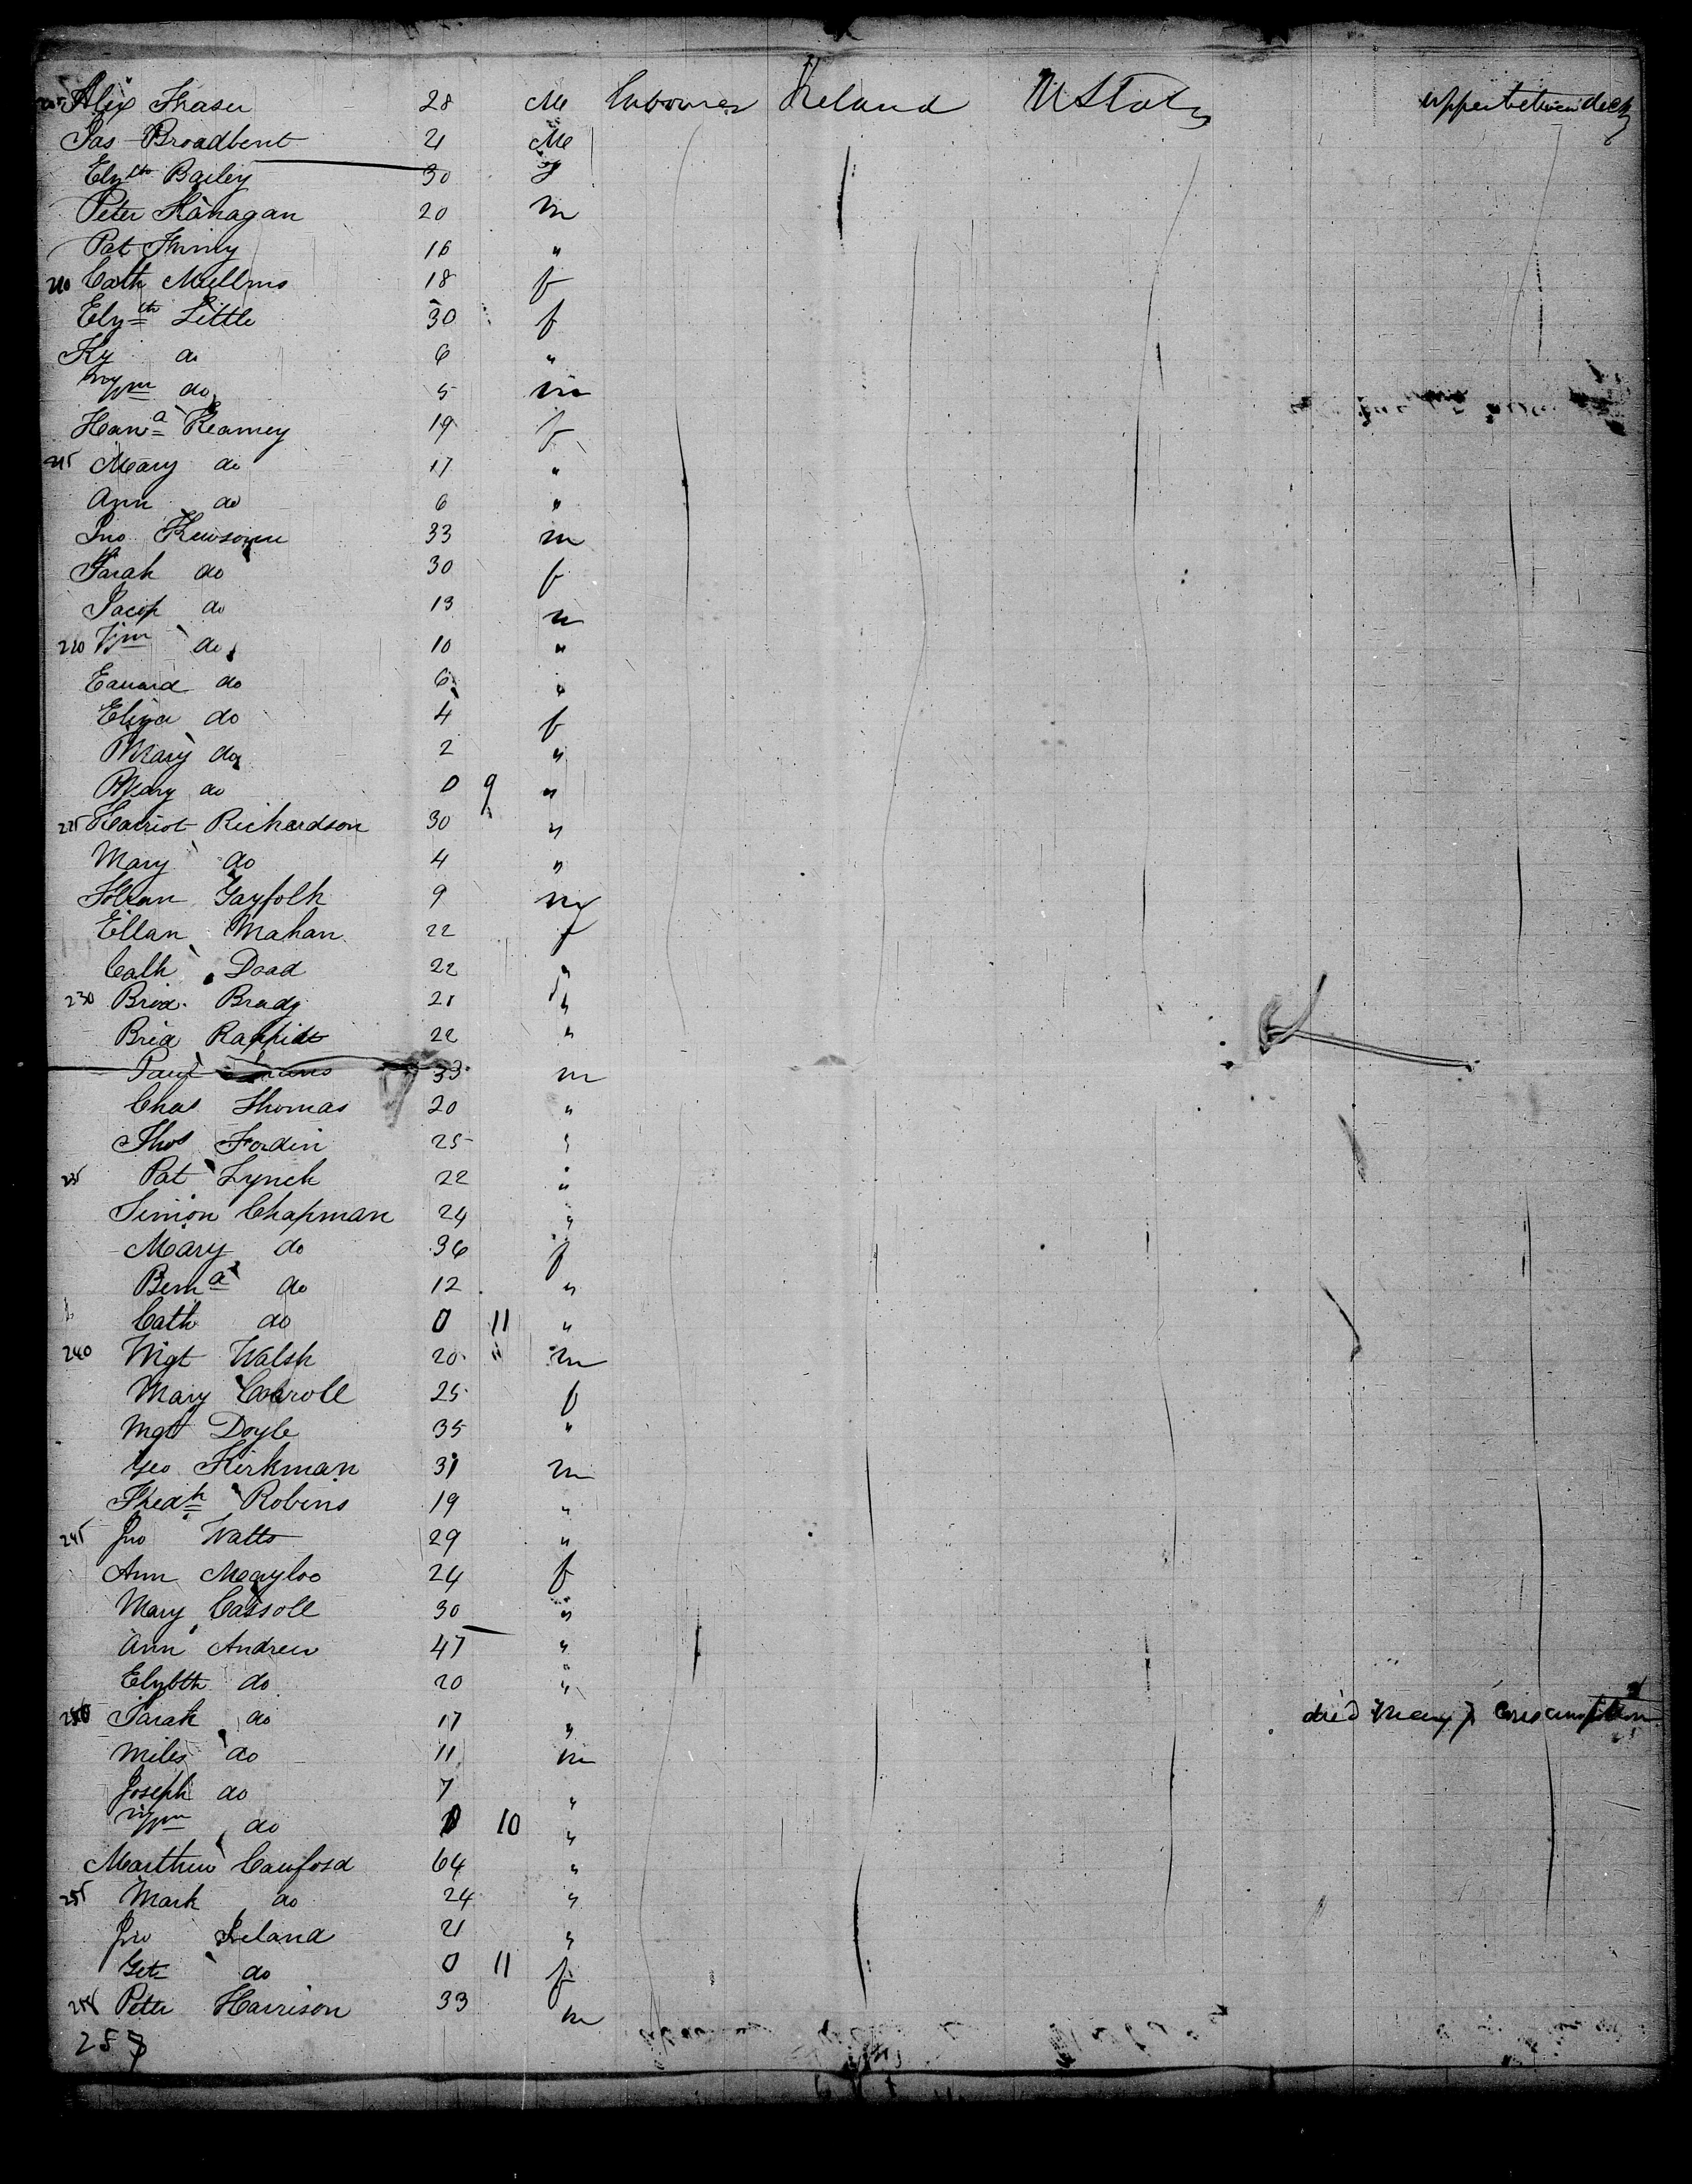 205 Alex Fraser 28 M Labourer Ireland U States upper between decks
Jas Broadbent 21 M
Elyth Bailey 30 f
Peter Flanagan 20 m
Pat 16 "
210 Cath Mullins 18 f
Elyth Little 30 f
Hy do 6 "
Wm do 5 m
Hana Kearney 19 f
215 Mary do 17 "
Ann do 6 "
Jno 33 m
Sarah do 30 f
Jacop do 13 m
220 Wm do 10 "
Edward do 6 "
Eliza do 4 f
Mary do 2 "
Mary do 0 9 "
225 Harriot Richardson 30 "
Mary do 4 "
Gayfolk 9 m
Ellan Mahan 22 f
Cath Doad 22 "
230 Brid. Brady 21 "
Brid 22 "
Paul 33 m
Chas Thomas 20 "
Thos Fordin 25 "
235 Pat Lynch 22 "
Simon Chapman 24 "
Mary do 36 f
Berna do 12 "
Cath do 0 11 "
240 Mgt Walsh 20 " m
Mary Carroll 25 f
Mgt Doyle 35 "
Geo Kirkman 31 m
Fredk Robins 19 "
245 Jno Watts 29 "
Ann 24 f
Mary Cassoll 30 "
Ann Andrew 47 "
Elybth do 20 "
250 Sarah do 17 " died consumption
Miles do 11 m
Joseph do 7 "
Wm do 0 10 "
Matthew Cauford 64 "
255 Mark do 24 "
Jno Ireland 21 "
do 0 11 f
258 Peter Harrison 33 m
257